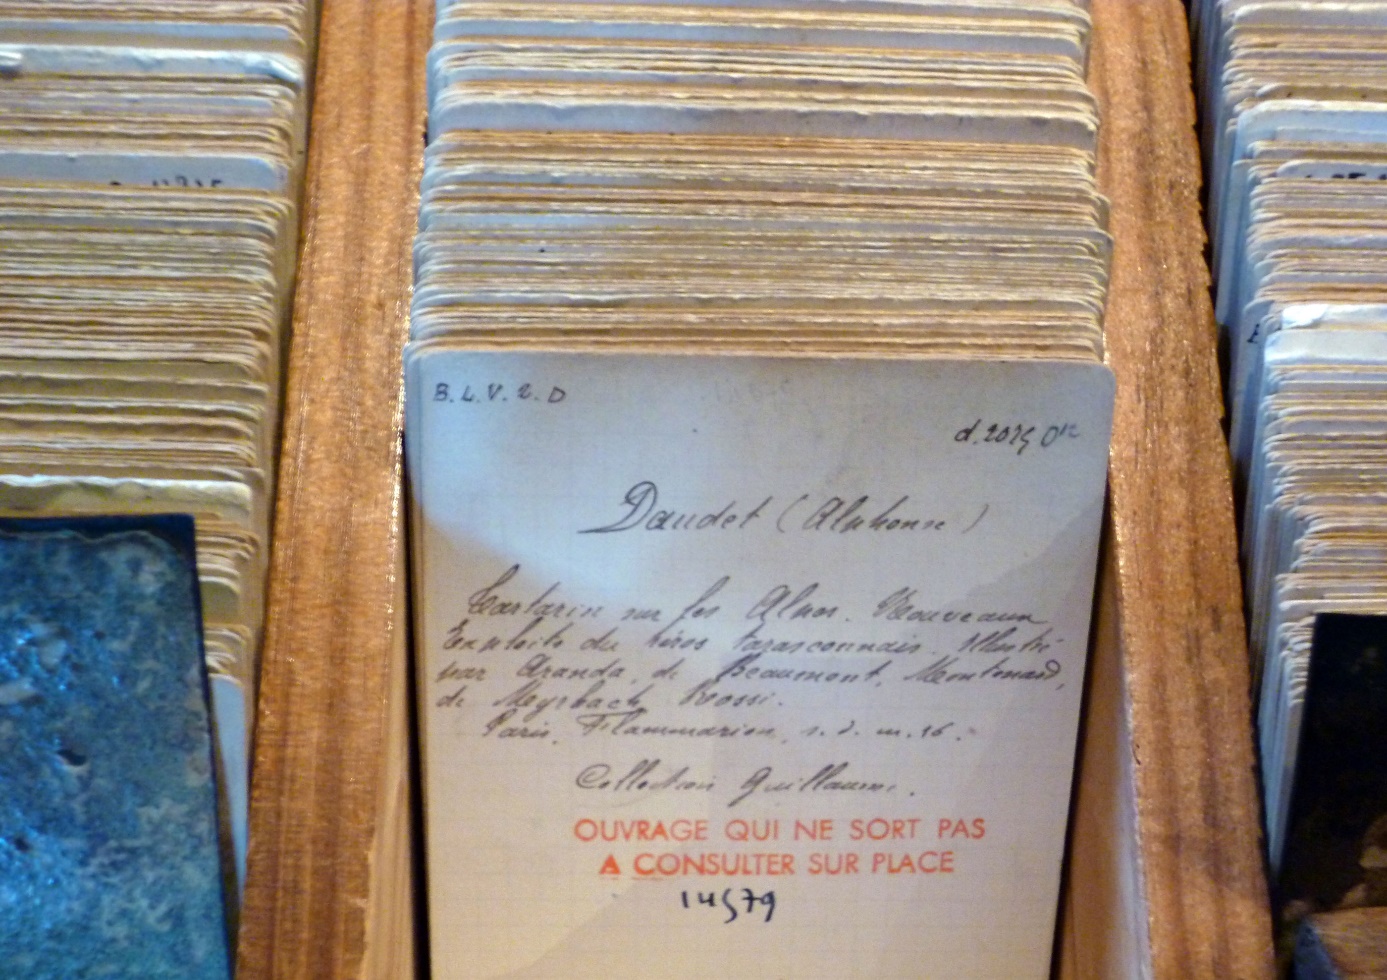 B. L. V. 2. D
d. 2075 D12
Daudet (Alphonse)
Tartarin sur les Alpes. Nouveaux
Exploits du héros tarasconnais. Illustré
par Aranda, de Beaumont, Montenard,
de Myrbach Rossi.
Paris, Flammarion, s. d. in. 16.
Collection Guillaume.
OUVRAGE QUI NE SORT PAS
A CONSULTER SUR PLACE
14579